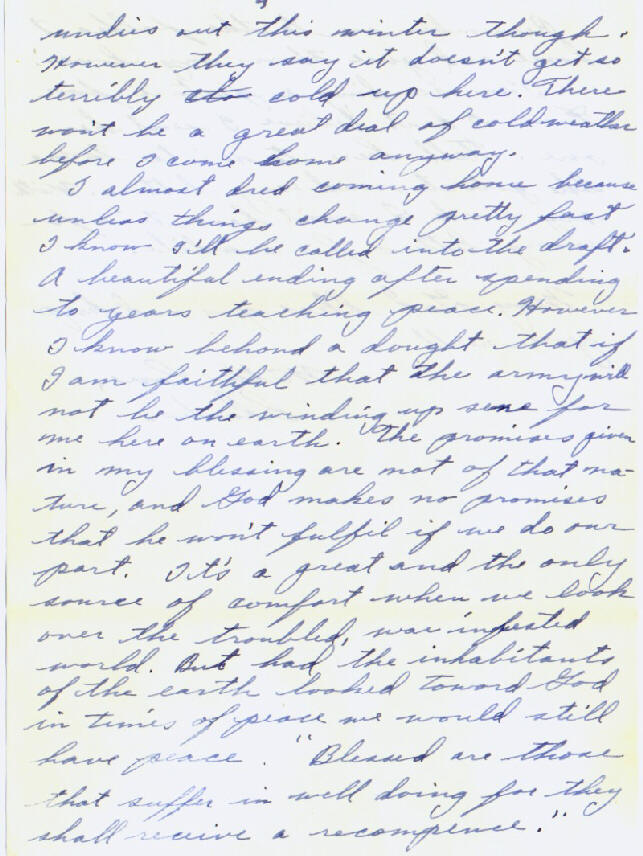 undies out this winter though.
However they say it doesn't get so
terribly sto cold up here. There
won't be a great deal of cold weather
before I come home anyway.
I almost dred coming home because
unless things change pretty fast
I know I'll be called into the draft.
A beautiful ending after spending
to years teaching peace. However
I know behond a dought that if
I am faithful that the army will
not be the winding up sene for
me here on earth. The promises given
in my blessing are not of that na-
ture, and God makes no promises
that he won't fulfil if we do our
part. It's a great and the only
source of comfort when we look
over the troubled, war infested
world. But had the inhabitants
of the earth looked toward God
in times of peace we would still
have peace. "Blessed are those
that suffer in well doing for they
shall receive a recompence."